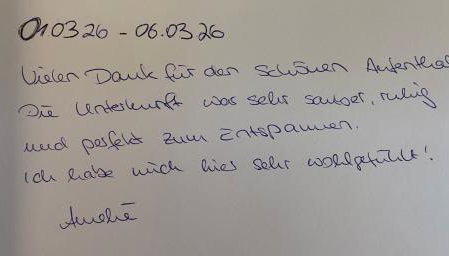 01.03.26 - 06.03.26
Vielen Dank für den schönen Aufenthal
Die Unterkunft war sehr sauber, ruhig
und perfekt zum Entspannen.
Ich habe mich hier sehr wohlgefühlt!
Amelie